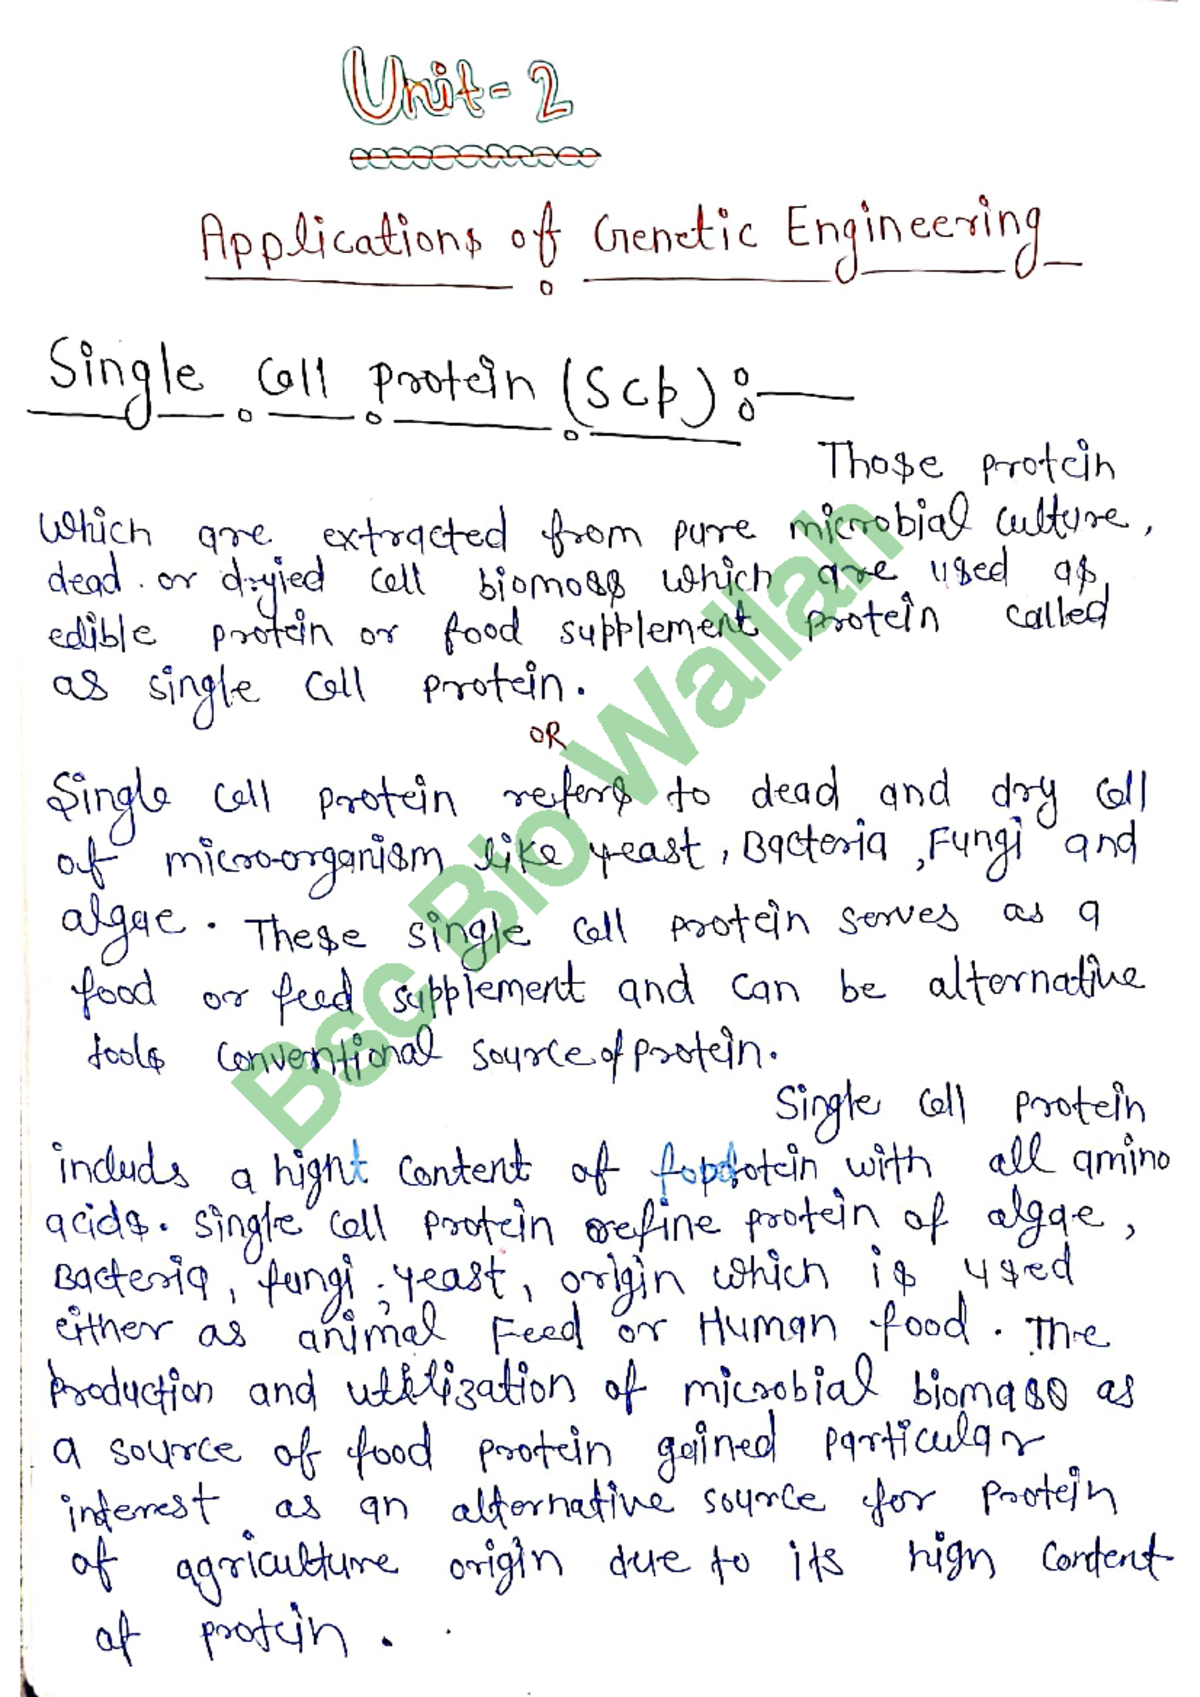 Unit-2
Applications of Genetic Engineering
Single Cell Protein (SCP) :-
Those protein
which are extracted from pure microbial culture,
dead or dryied cell biomass which are used as
edible protein or food supplement protein called
as single cell protein.
OR
Single cell protein refers to dead and dry cell
of micro-organism like yeast, Bacteria, Fungi and
algae. These single cell protein serves as a
food or feed supplement and can be alternative
tools conventional source of protein.
Single cell protein
includs a hight content of protein with all amino
acids. Single cell protein refine protein of algae,
Bacteria, fungi, yeast, origin which is used
either as animal Feed or Human food. The
production and utilization of microbial biomass as
a source of food protein gained particular
interest as an alternative source for protein
of agriculture origin due to its high content
of protein.
Bsc Bio Wallah